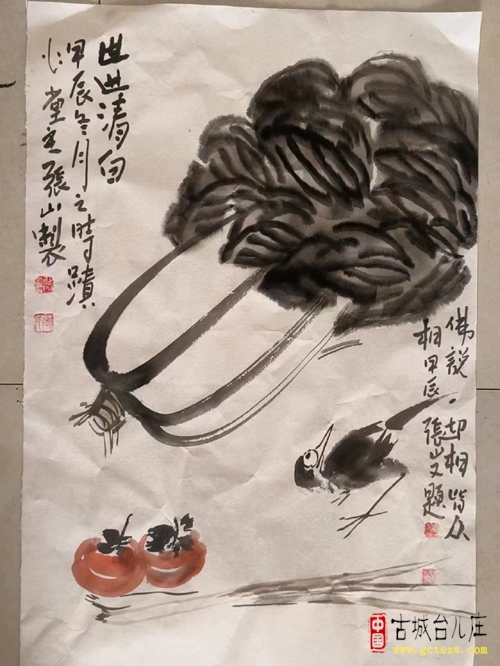 世世清白
甲辰冬月之時
堂主張山製
佛說一切相皆众
相甲辰張山又題
中国
古城台儿庄
www.gctezw.com